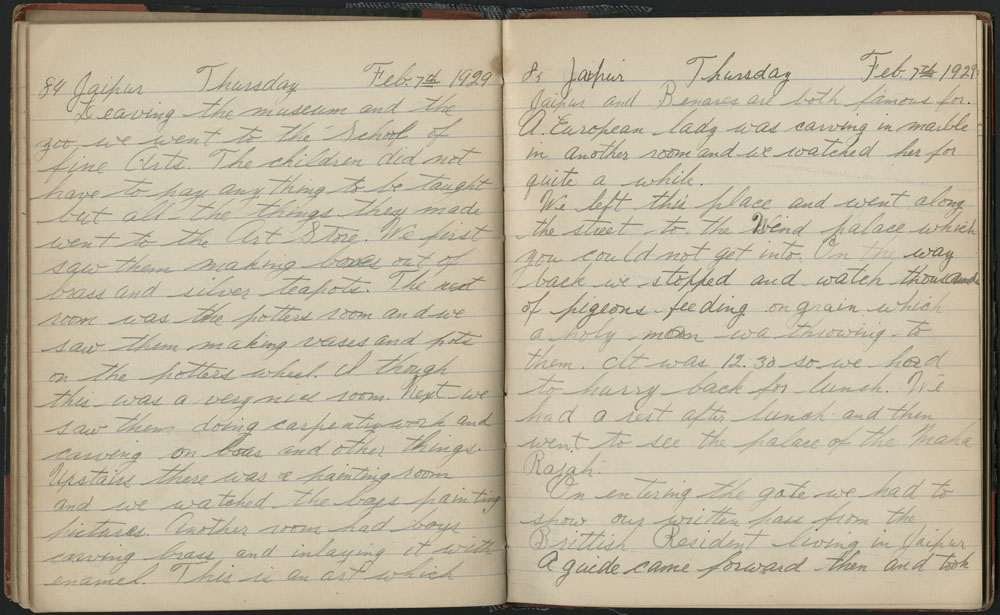 84 Jaipur Thursday Feb. 7th 1929
Leaving the museum and the
zoo, we went to the School of
fine Arts. The children did not
have to pay anything to be taught
but all the things they made
went to the Art Store. We first
saw them making boxes out of
brass and silver teapots. The next
room was the potters room and we
saw them making vases and pots
on the potters wheel. I though
this was a very nice room. Next we
saw them doing carpentry work and
carving on boxes and other things.
Upstairs there was a painting room
and we watched the boys painting
pictures. Another room had boys
carving brass and inlaying it with
enamel. This is an art which
85 Jaipur Thursday Feb. 7th 1929.
Jaipur and Benares are both famous for.
A European lady was carving in marble
in another room and we watched her for
quite a while.
We left this place and went along
the street to the Wind palace which
you could not get into. On the way
back we stopped and watch thousands
of pigeons feeding on grain which
a holy man wa throwing to
them. It was 12.30 so we had
to hurry back for lunch. We
had a rest after lunch and then
went to see the palace of the Maha
Rajah.
On entering the gate we had to
show our written pass from the
Brittish Resident living in Jaipur
A guide came forward then and took